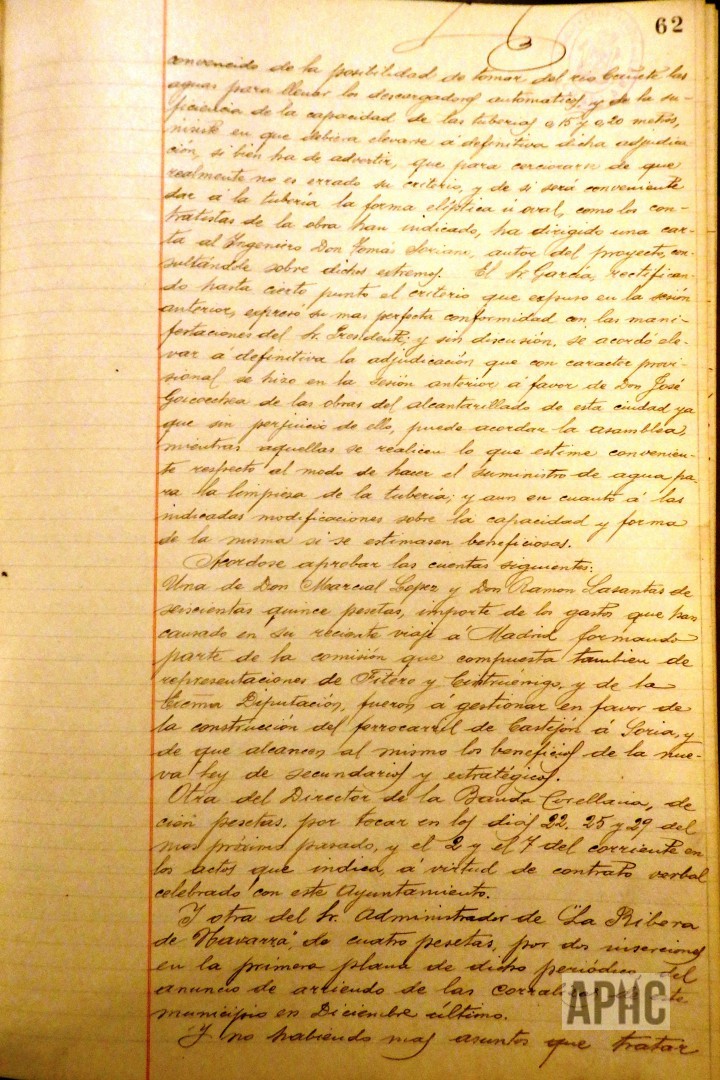 62
convencido de la posibilidad de tomar del rio Cañete las
aguas para llenar los descargadores automáticos, y de la su-
ficiencia de la capacidad de las tuberias 0,15 y 0,20 metros,
insiste en que debiera elevarse á definitiva dicha adjudica
ción, si bien ha de advertir, que para cerciorarse de que
realmente no es errado su criterio, y de si será conveniente
dar á la tubería la forma elíptica ú oval, como los con-
tratistas de la obra han indicado, ha dirigido una car-
ta al Ingeniero Don Tomás Soriano, autor del proyecto, con-
sultándole sobre dichos extremos. El Sr. García, rectifican-
do hasta cierto punto el criterio que expuso en la sesión
anterior, expresó su mas perfecta conformidad con las mani-
festaciones del Sr. Presidente; y sin discusión, se acordó ele-
var á definitiva la adjudicación que con caracter provi-
sional se hizo en la sesión anterior á favor de Don José
Goicoechea de las obras del alcantarillado de esta ciudad ya
que sin perjuicio de ello, puede acordar la asamblea,
mientras aquellas se realicen lo que estime convenien-
te respecto al modo de hacer el suministro de agua pa-
ra la limpieza de la tubería; y aun en cuanto á las
indicadas modificaciones sobre la capacidad y forma
de la misma si se estimasen beneficiosas.
Acordose aprobar las cuentas siguientes:
Una de Don Marcial Lopez y Don Ramon Lasantas de
seiscientas quince pesetas, importe de los gastos que han
causado en su reciente viaje á Madrid formando
parte de la comisión que compuesta tambien de
representaciones de Fitero y Cintruénigo, y de la
Excma Diputación, fueron á gestionar en favor de
la construcción del ferrocarril de Castejón á Soria, y
de que alcancen al mismo los beneficios de la nue-
va ley de secundarios y estratégicos.
Otra del Director de la Banda Corellana, de
cien pesetas, por tocar en los dias 22, 25 y 29 del
mes próximo pasado, y el 2 y el 7 del corriente en
los actos que indica, á virtud de contrato verbal
celebrado con este Ayuntamiento.
Y otra del Sr. Administrador de "La Ribera
de Navarra" de cuatro pesetas, por dos inserciones
en la primera plana de dicho periódico, del
anuncio de arriendo de las corralizas de este
municipio en Diciembre último.
Y no habiendo mas asuntos que tratar
APHC